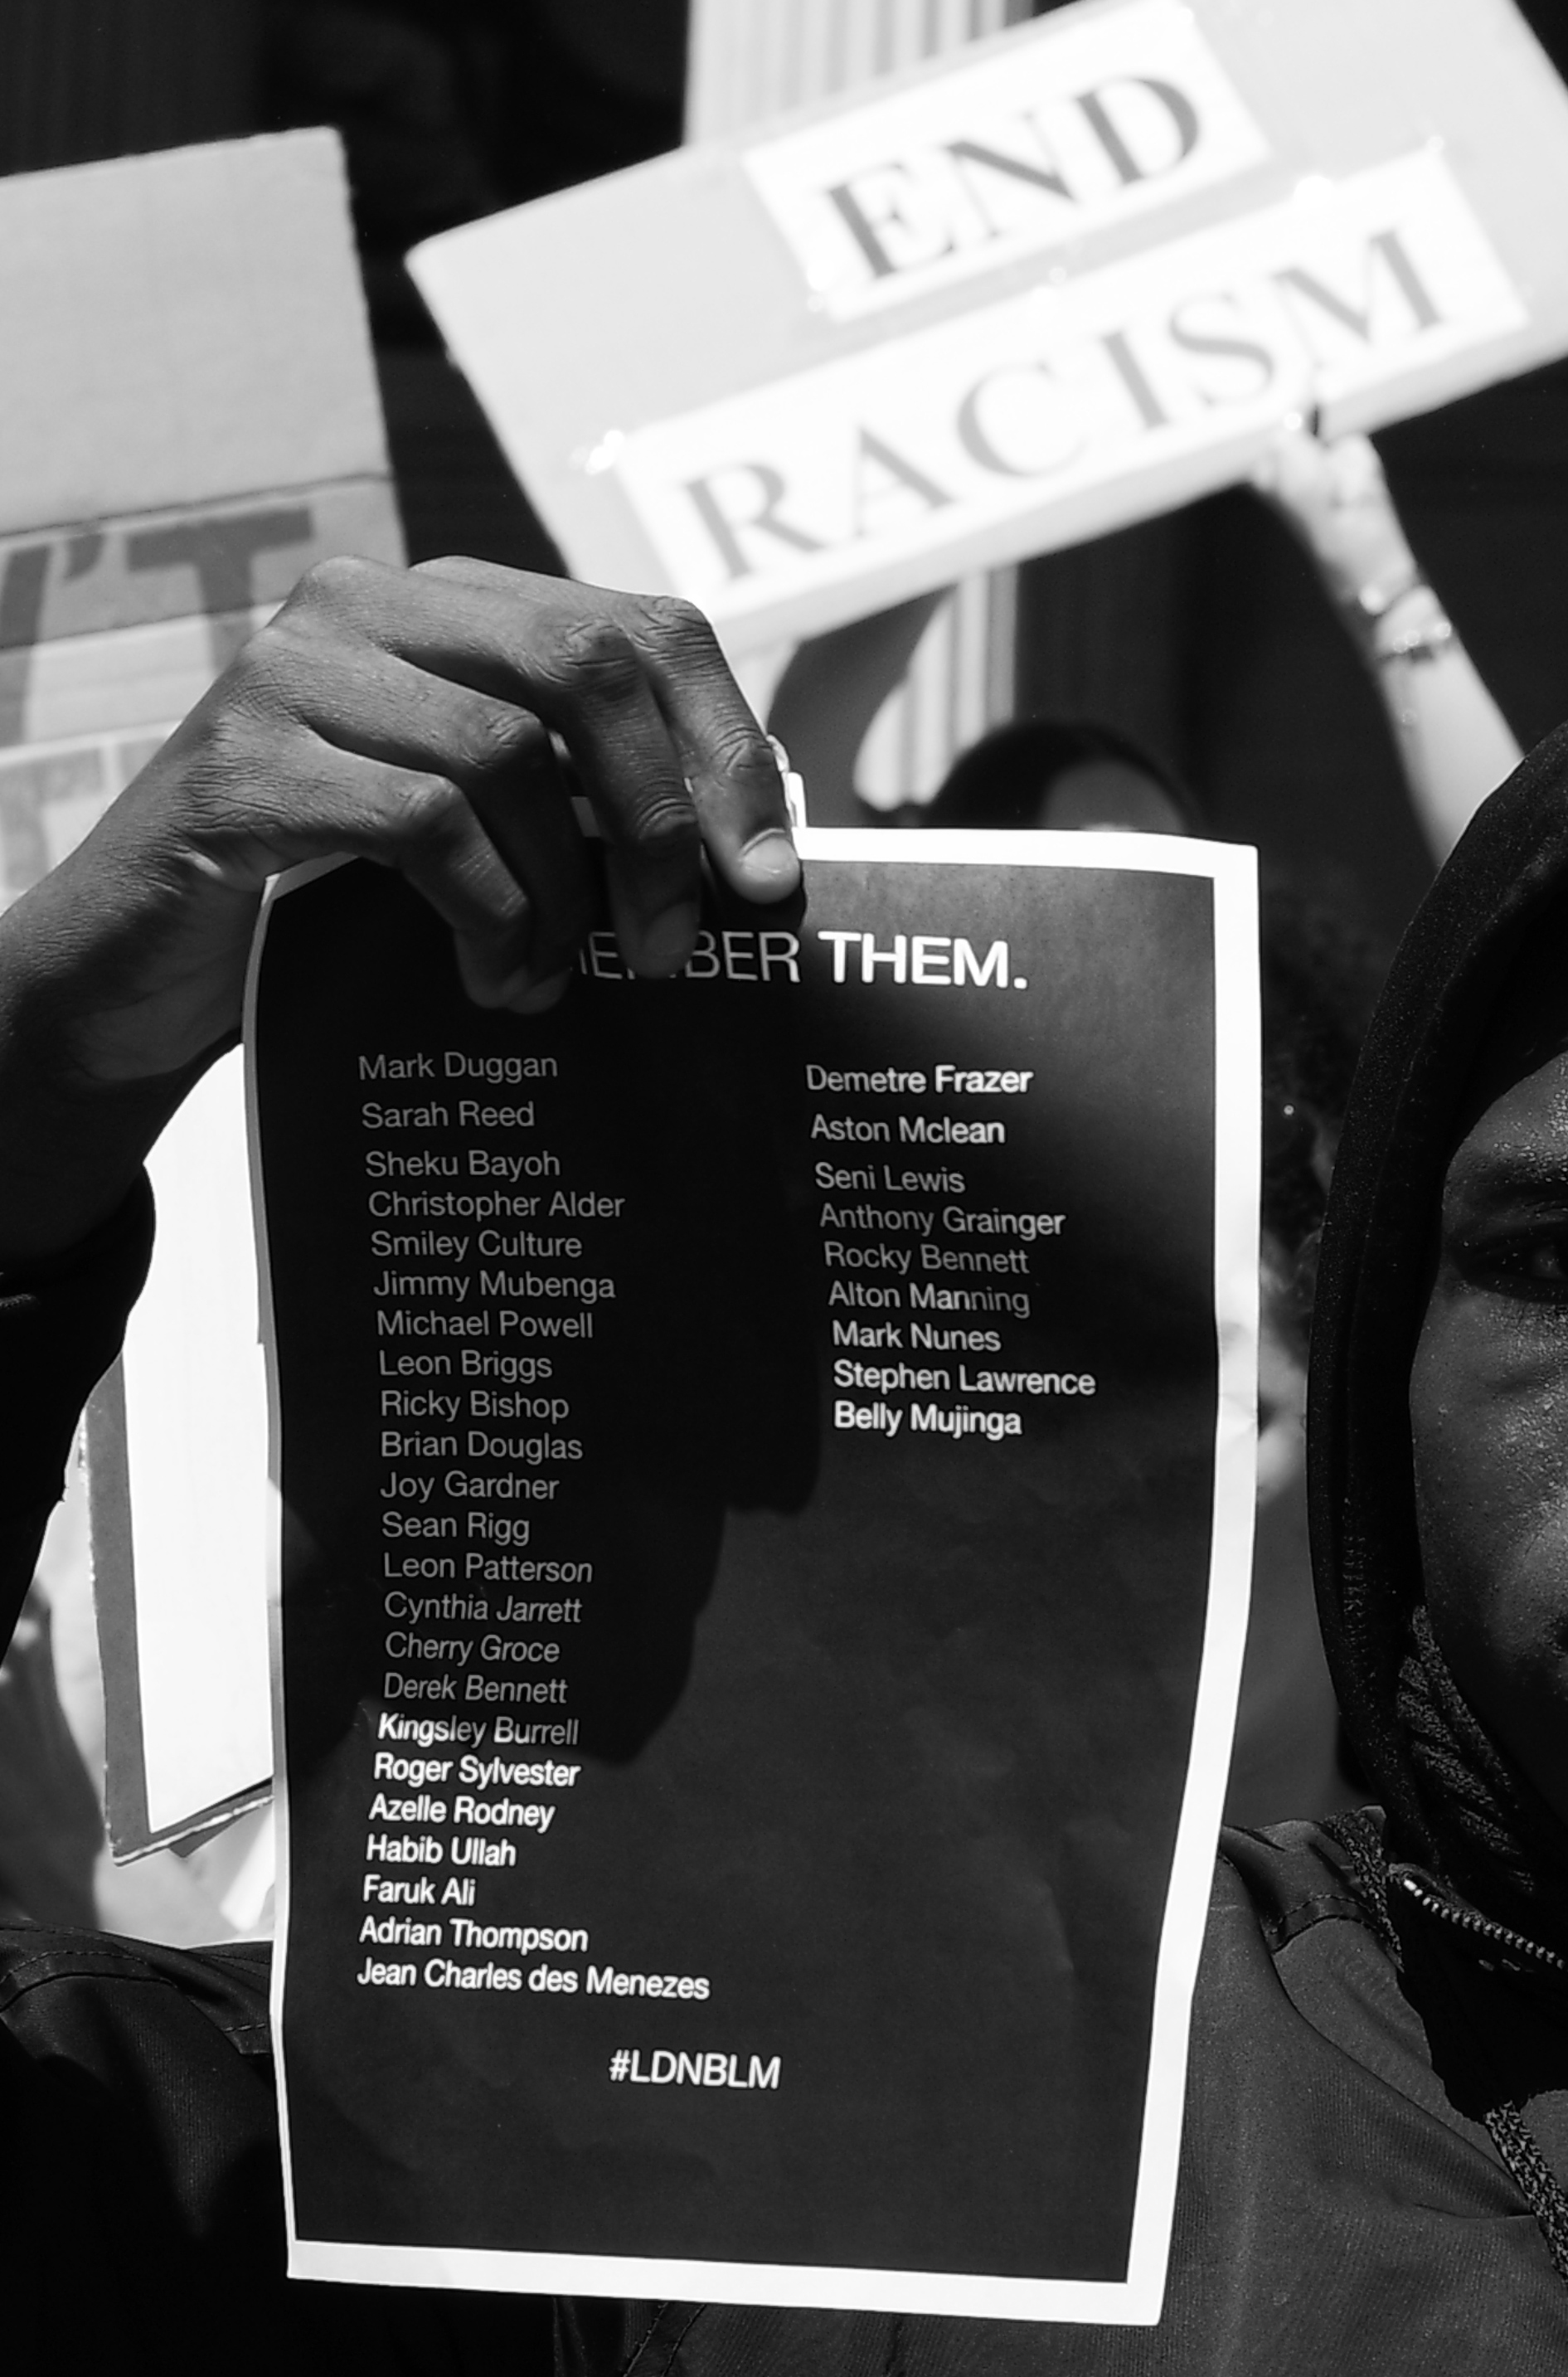 END
RACISM
'T
THEM.
Mark Duggan
Sarah Reed
Sheku Bayoh
Christopher Alder
Smiley Culture
Jimmy Mubenga
Michael Powell
Leon Briggs
Ricky Bishop
Brian Douglas
Joy Gardner
Sean Rigg
Leon Patterson
Cynthia Jarrett
Cherry Groce
Derek Bennett
Kingsley Burrell
Roger Sylvester
Azelle Rodney
Habib Ullah
Faruk Ali
Adrian Thompson
Jean Charles des Menezes
Demetre Frazer
Aston Mclean
Seni Lewis
Anthony Grainger
Rocky Bennett
Alton Manning
Mark Nunes
Stephen Lawrence
Belly Mujinga
#LDNBLM